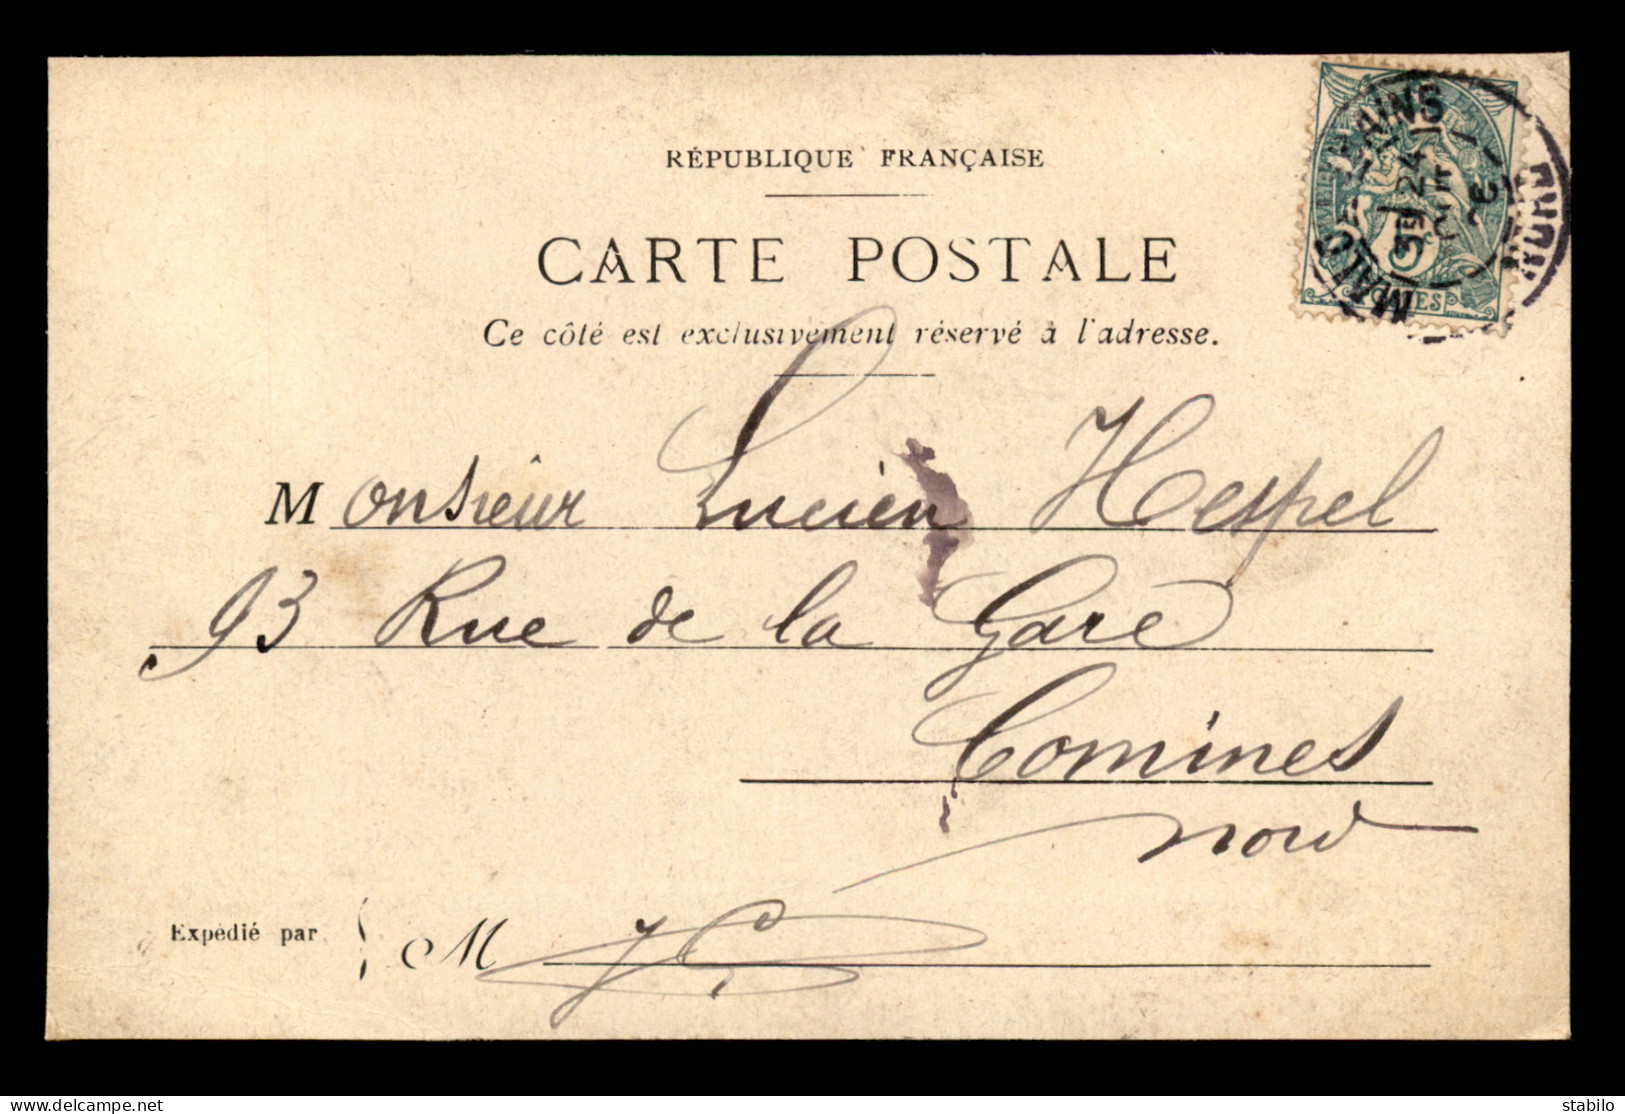 RÉPUBLIQUE FRANÇAISE
CARTE POSTALE
Ce côté est exclusivement réservé à l'adresse.
Monsieur Lucien Hespel
93 Rue de la Gare
Comines
Nord
Expédié par M
MALO-LES-BAINS
24
NORD
5c
stabilo